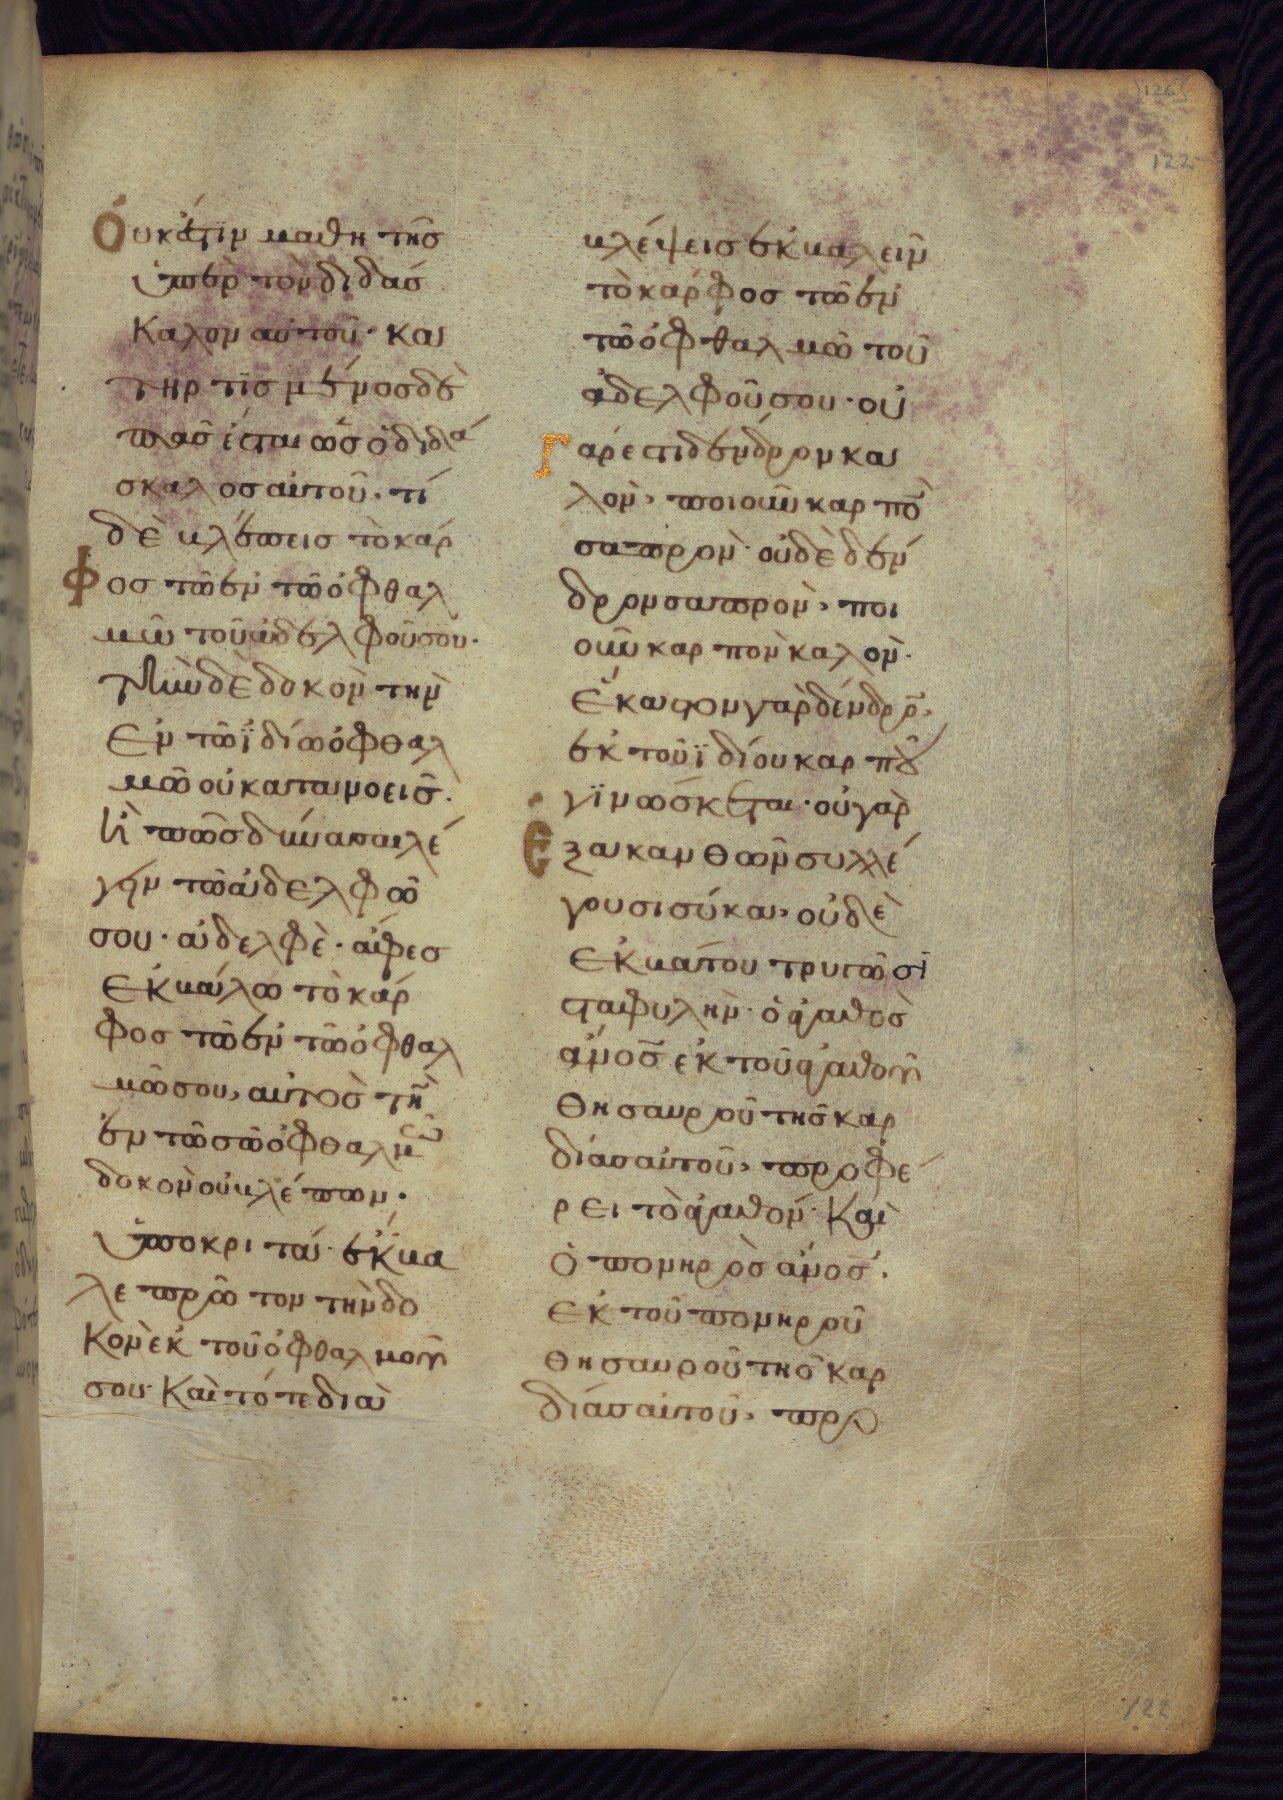 126
122
Ὀυκἔστϊν μαθητῆσ
ὑπὲρ τὸν διδάσ
καλον αὐτοῦ· κα
τηρτϊσμένοσ δὲ
πᾶσ ἔσται ὡσ ὁ διδά
σκαλοσ αὐτοῦ· τί
δὲ βλέπεισ τὸ κάρ
φοσ τῶ ἐν τῶ ὀφθαλ
μῶ τοῦ ἀδελφοῦ σου·
τὴν δὲ δοκὸν τὴν
ἐν τῶ ϊδίω ὀφθαλ
μῶ οὐ κατανοεῖσ.
ἢ πῶσ δύνασαι λέ
γην τῶ ἀδελφῶ
σου· ἀδελφὲ· ἄφεσ
ἐκβάλω τὸ κάρ
φοσ τῶ ἐν τῶ ὀφθαλ
μῶ σου, αὐτὸσ τὴν
ἐν τῶ σῶ ὀφθαλμῶ
δοκὸν οὐ βλέπων.
ὑποκριτά· ἔκβα
λε πρῶτον τὴν δο
κὸν ἐκ τοῦ ὀφθαλμοῦ
σου· καὶ τότε δια
βλέψεισ ἐκβαλεῖν
τὸ κάρφοσ τῶ ἐν
τῶ ὀφθαλμῶ τοῦ
ἀδελφοῦ σου· οὐ
γάρ ἐστι δένδρον κα
λὸν, ποιοῦν καρπὸ̅
σαπρὸν· οὐδὲ δέν
δρον σαπρὸν, ποι
οῦν καρπὸν καλὸν.
ἕκαστον γὰρ δένδρο̅,
ἐκ τοῦ ϊδίου καρποῦ
γϊνώσκεται· οὐ γὰρ
ἐξ ἀκανθῶν συλλέ
γουσι σύκα, οὐδὲ
ἐκ βάτου τρυγῶσι
σταφυλὴν· ὁ ἀγαθὸσ
ἄν̅ο̅σ̅ ἐκ τοῦ ἀγαθοῦ
θησαυροῦ τῆσ καρ
δίασ αὐτοῦ, προφέ
ρει τὸ ἀγαθόν· καὶ
ὁ πονηρὸσ ἄν̅ο̅σ̅.
ἐκ τοῦ πονηροῦ
θησαυροῦ τῆσ καρ
δίασ αὐτοῦ, προ
122